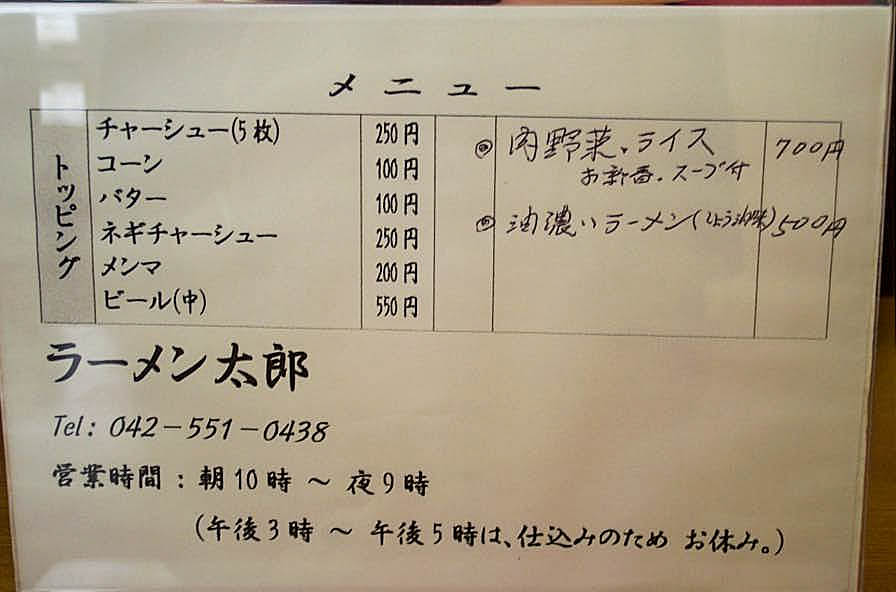 メニュー
トッピング
チャーシュー(5枚) 250円
コーン 100円
バター 100円
ネギチャーシュー 250円
メンマ 200円
ビール(中) 550円
◎ 肉野菜、ライス 700円
お新香、スープ付
◎ 油濃いラーメン(しょう油味) 500円
ラーメン太郎
Tel: 042-551-0438
営業時間 : 朝10時 ～ 夜9時
(午後3時 ～ 午後5時は、仕込みのため お休み。)